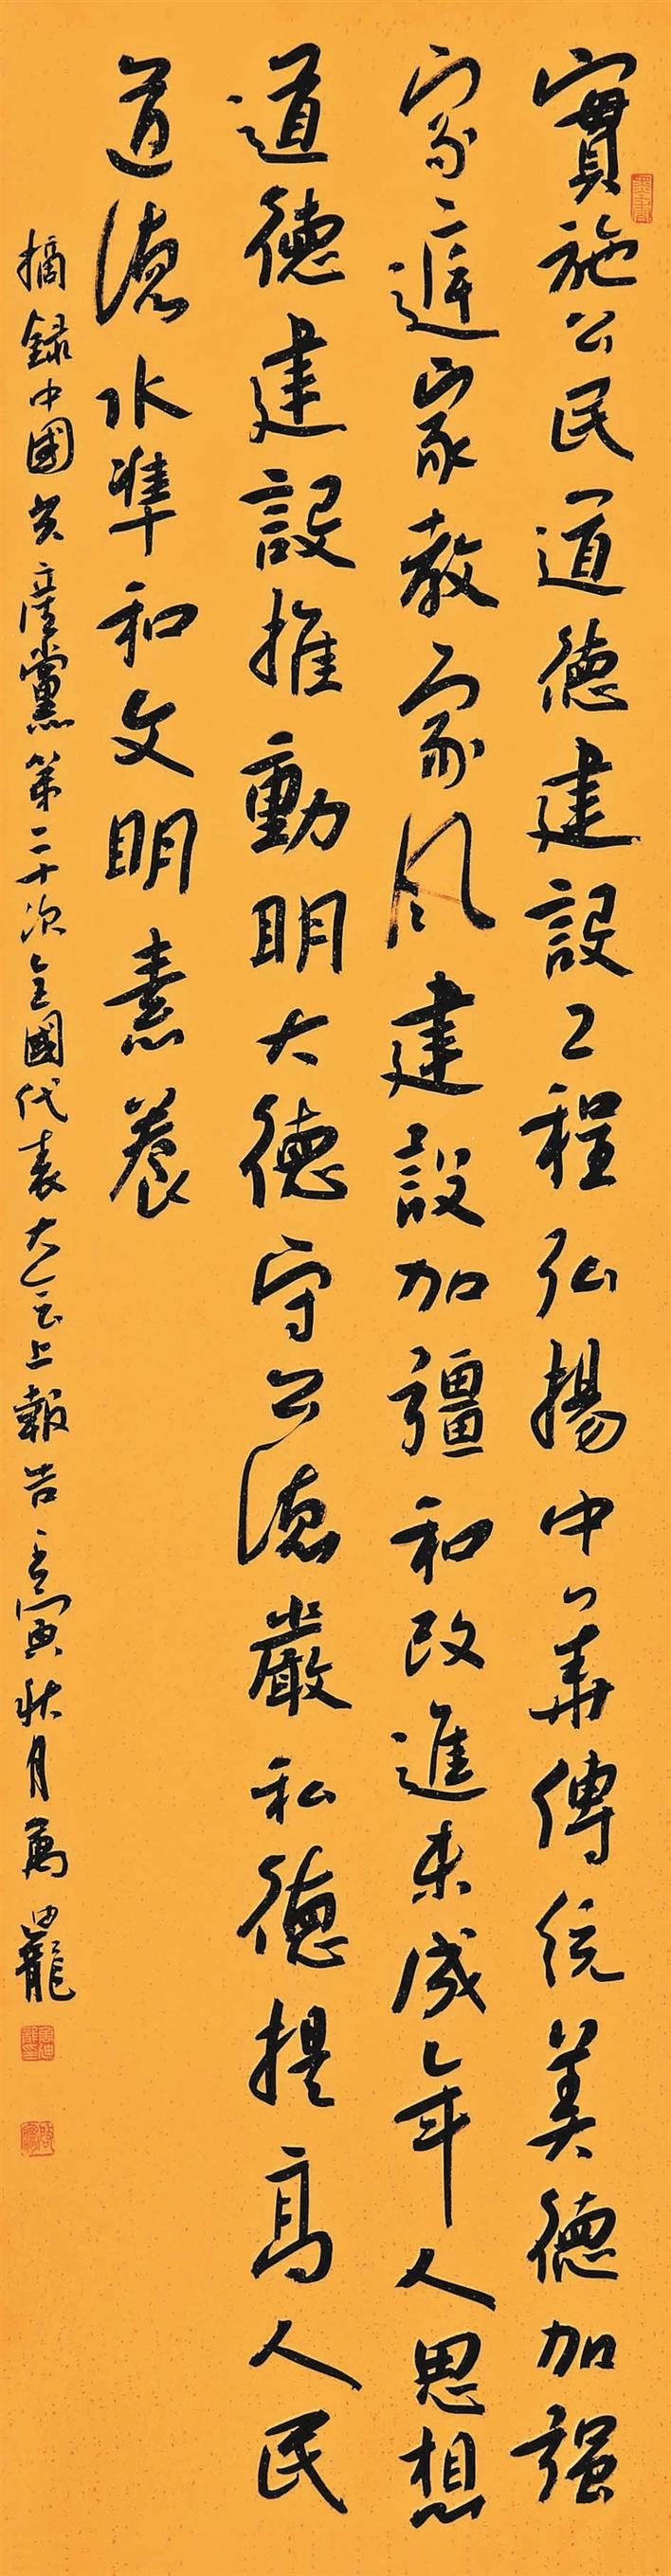 實施公民道德建設工程弘揚中華傳統美德加强
家庭家教家风建設加彊和改進未成年人思想
道德建設推動明大德守公德嚴私德提高人民
道德水準和文明素養
摘録中國共産黨第二十次全國代表大会上報告壬寅秋月萬迪龍